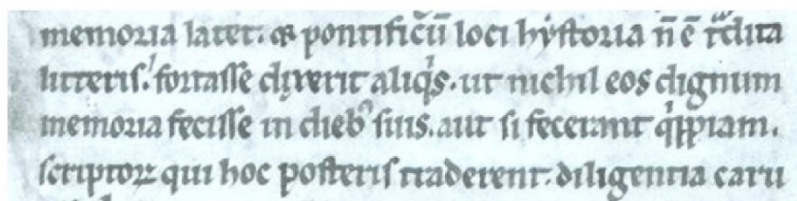 memoria latet. qꝫ pontificū loci hẏstoria n̄ ē t͛dita
litteris.' fortasse dixerit aliqͥs. ut nichil eos dignum
memoria fecisse in dieb᾽ suis. aut si fecerant qͥppiam.
scriptoꝝ qui hoc posteris traderent. diligentia caru